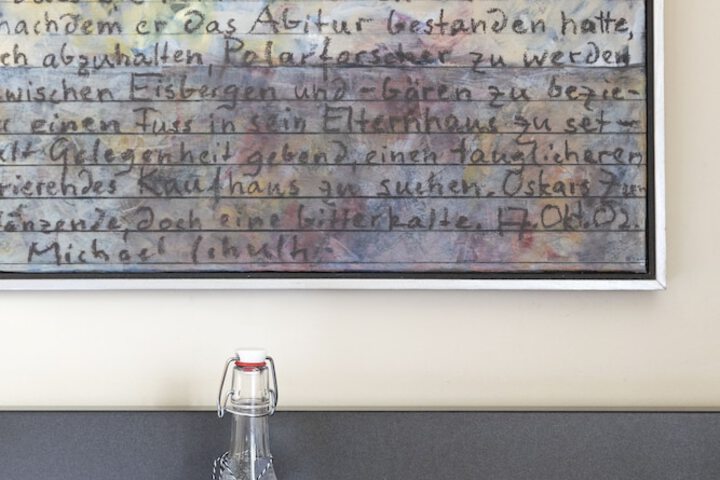 nachdem er das Abitur bestanden hatte,
ch abzuhalten, Polarforscher zu werden
wischen Eisbergen und -bären zu bezie-
r einen Fuss in sein Elternhaus zu set-
lt Gelegenheit gebend, einen tauglicheren
rierendes Kaufhaus zu suchen. Oskars Zun
länzende, doch eine bitterkalte. 17. Okt. 02.
Michael Schulth